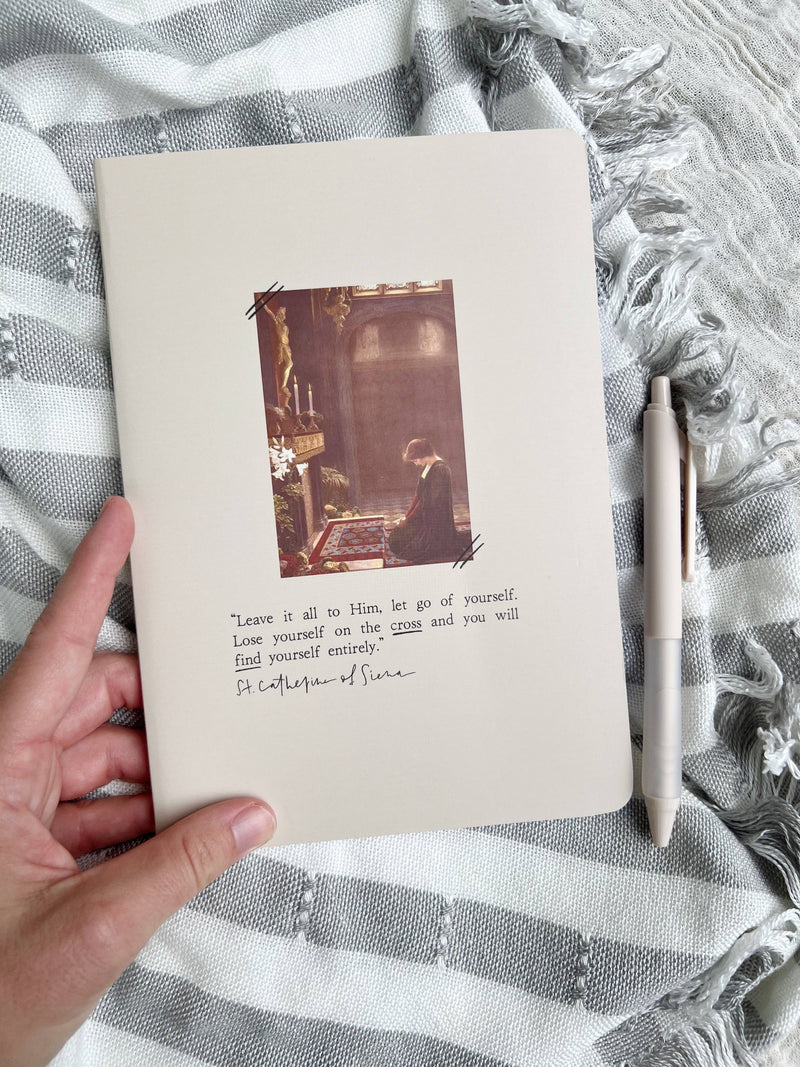 “Leave it all to Him, let go of yourself.
Lose yourself on the cross and you will
find yourself entirely.”
St. Catherine of Siena